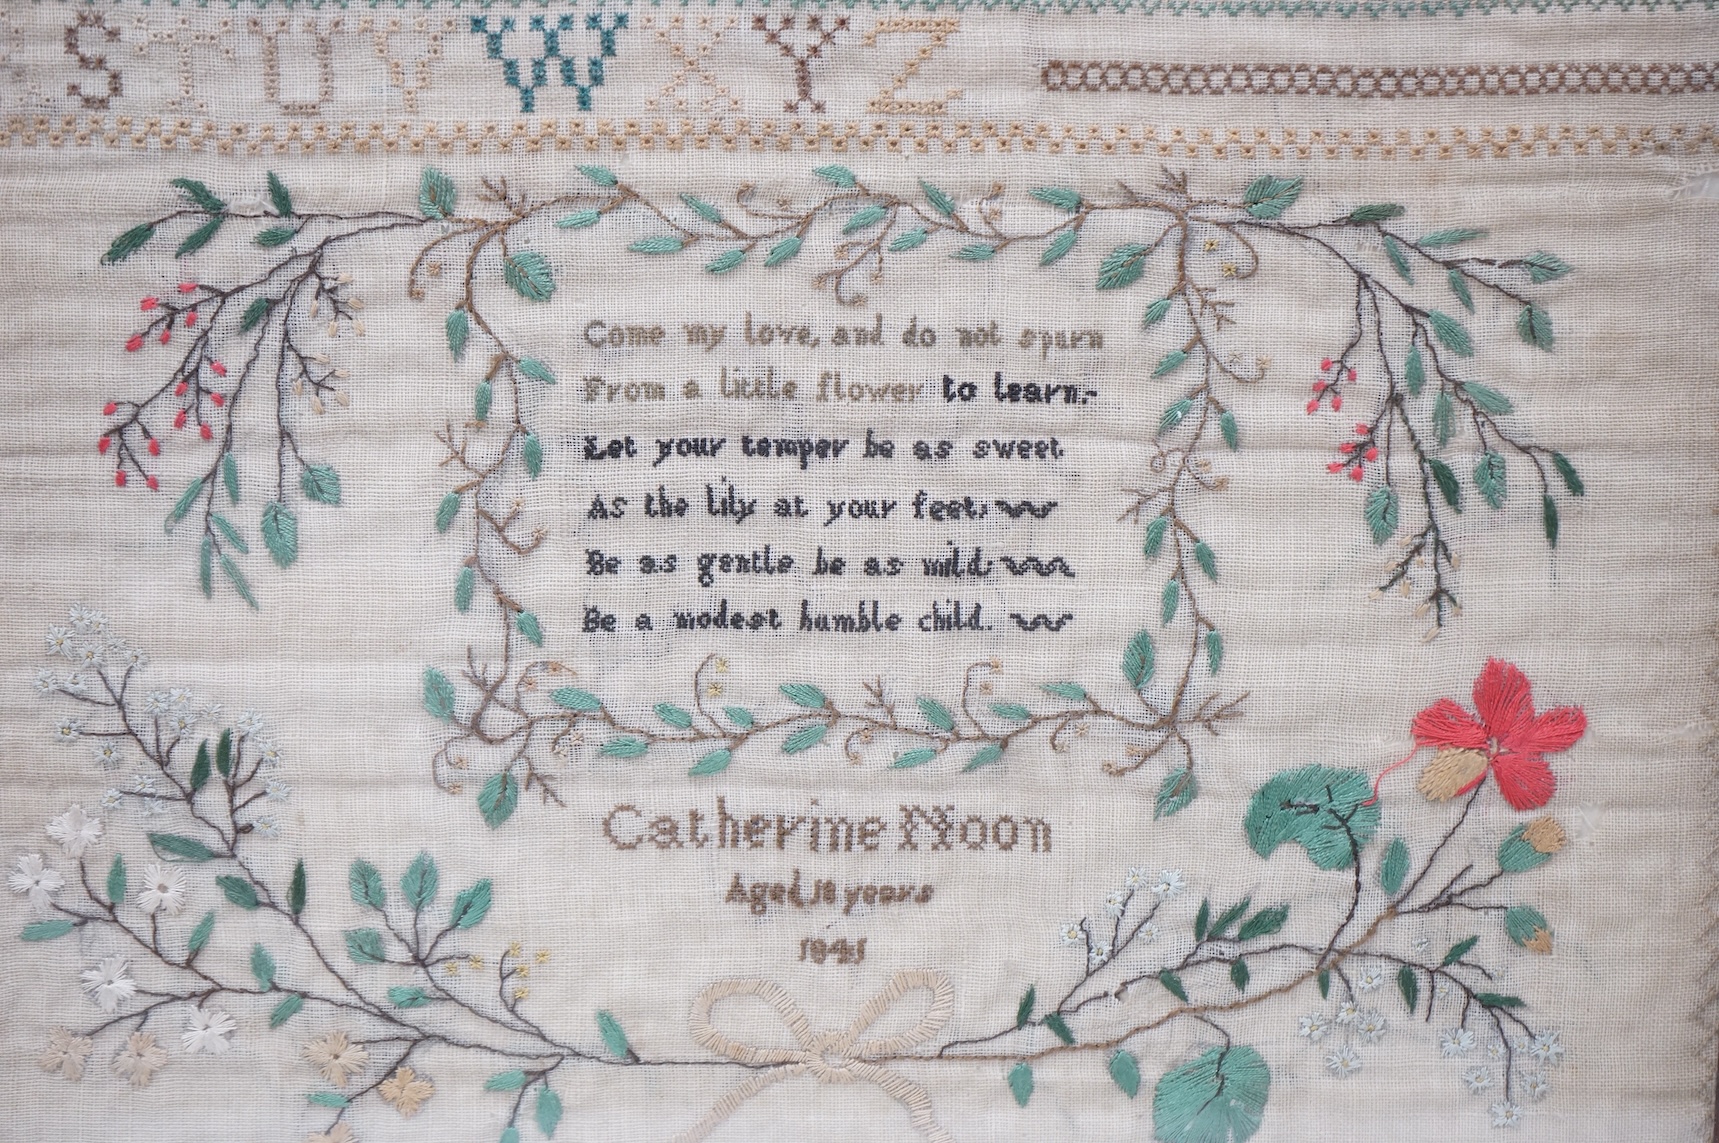 S T U V W X Y Z
Come my love, and do not spurn
From a little flower to learn.
Let your temper be as sweet
As the lily at your feet;
Be as gentle be as mild;
Be a modest humble child.
Catherine Noon
Aged years
1841